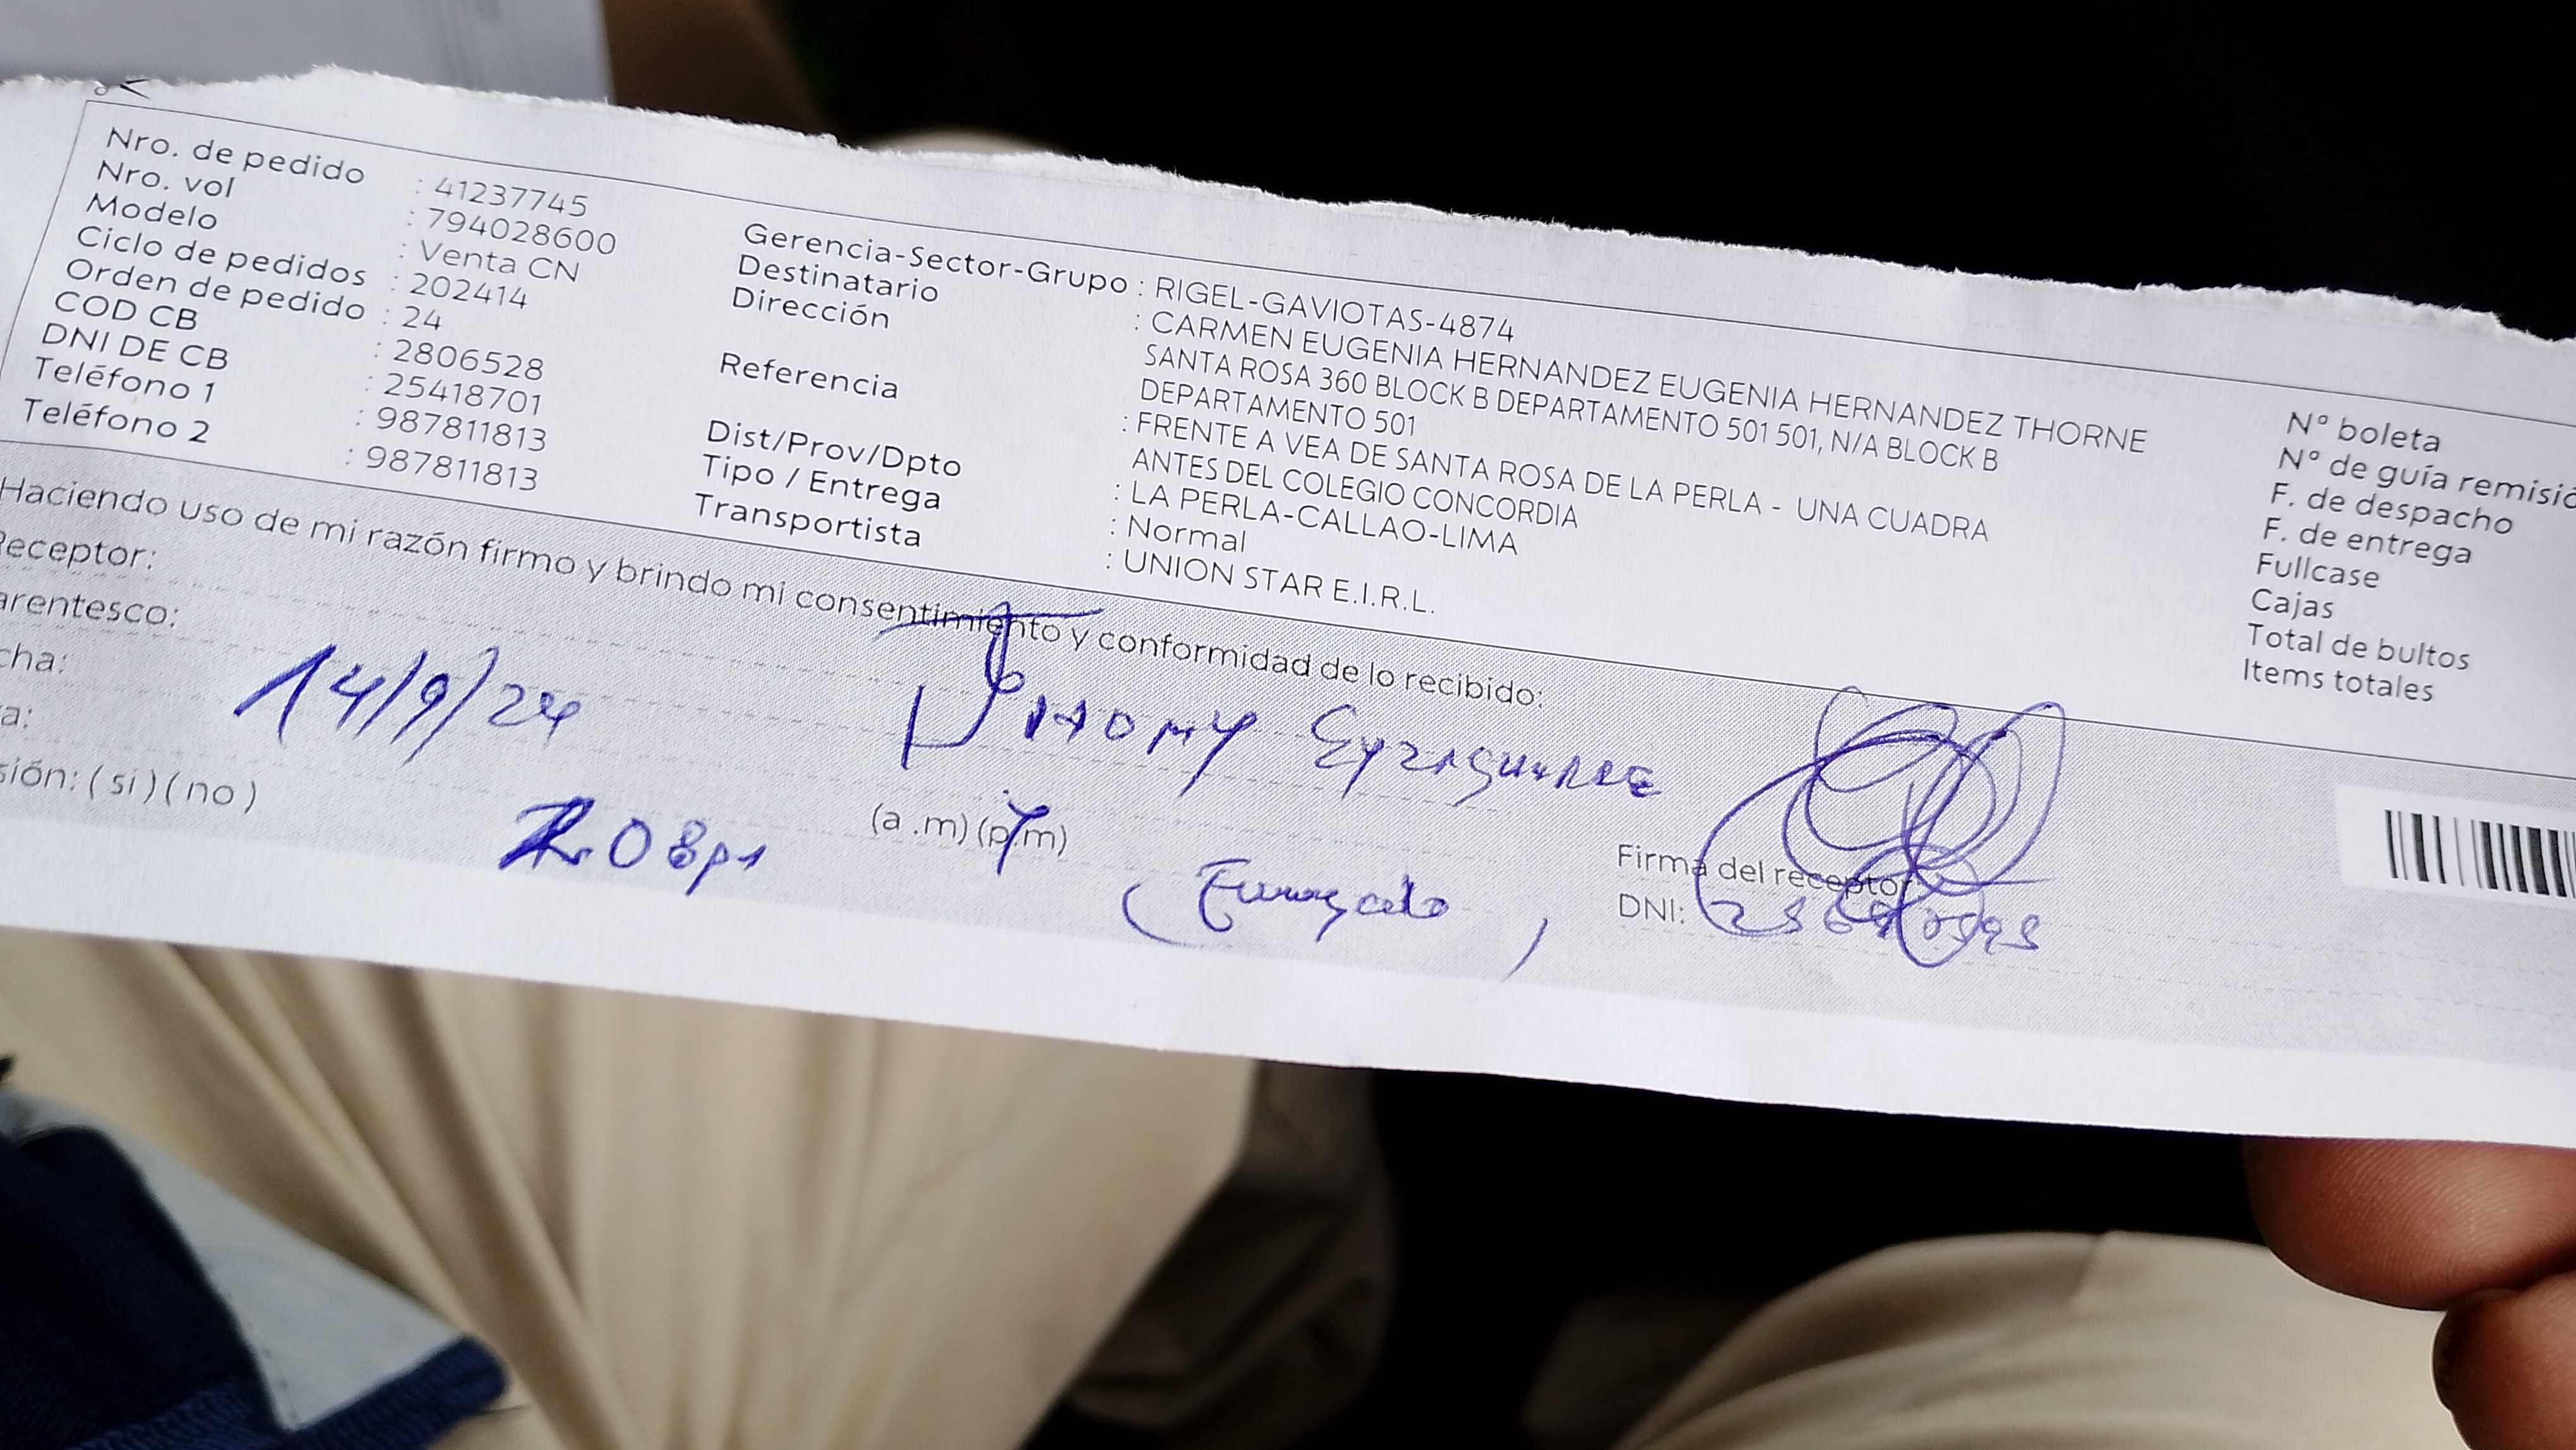 Nro. de pedido : 41237745
Nro. vol : 794028600
Modelo : Venta CN
Ciclo de pedidos : 202414
Orden de pedido : 24
COD CB : 2806528
DNI DE CB : 25418701
Teléfono 1 : 987811813
Teléfono 2 : 987811813
Gerencia-Sector-Grupo : RIGEL-GAVIOTAS-4874
Destinatario : CARMEN EUGENIA HERNANDEZ EUGENIA HERNANDEZ THORNE
Dirección SANTA ROSA 360 BLOCK B DEPARTAMENTO 501 501, N/A BLOCK B
DEPARTAMENTO 501
Referencia : FRENTE A VEA DE SANTA ROSA DE LA PERLA - UNA CUADRA
ANTES DEL COLEGIO CONCORDIA
Dist/Prov/Dpto : LA PERLA-CALLAO-LIMA
Tipo / Entrega : Normal
Transportista : UNION STAR E.I.R.L.
N° boleta
N° de guía remisió
F. de despacho
F. de entrega
Fullcase
Cajas
Total de bultos
Items totales
Haciendo uso de mi razón firmo y brindo mi consentimiento y conformidad de lo recibido:
Receptor:
arentesco:
cha: 14/9/24
a:
sión: ( si ) ( no )
(a .m) (p.m)
Firma del receptor
DNI: